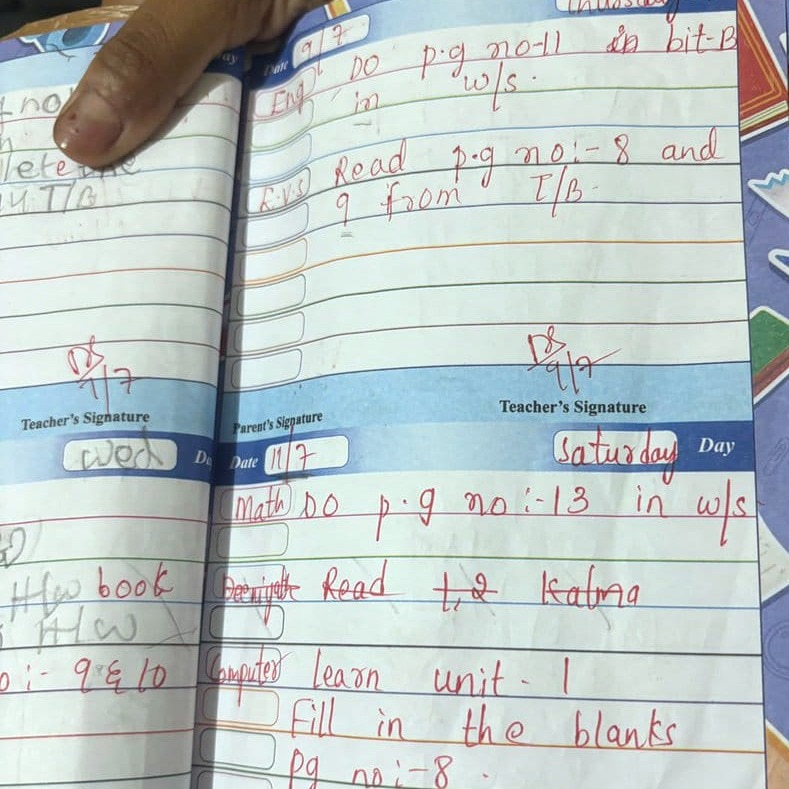 no
lete the
T/B
9/7
Teacher's Signature
wed
H/w book
H/w
o :- 9 & 10
Thursday
Date 9/7
Eng DO p.g no-11 in bit-B
in w/s.
E.V.S Read p.g no:- 8 and
9 from T/B.
9/7
Parent's Signature Teacher's Signature
Date 11/7 Saturday Day
Math DO p.g no:-13 in w/s
Deeniyath Read 1,2 Kalma
Computer learn unit - 1
Fill in the blanks
pg no:-8.